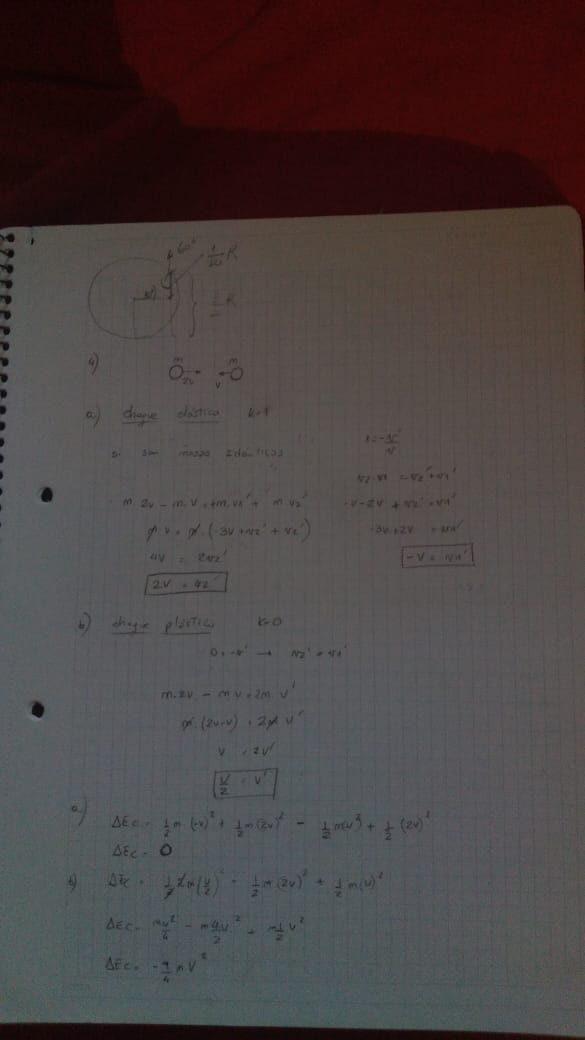 60°
R
1/2 R
4)
m m
2v v
a) choque elástico k=1
si son masas idénticas
v2-v1 = v2'+v1'
m. 2v - m. v = m. v1' + m v2' -v-2v + v2' = v1'
m. v = m. (-3v+v2' + v2') -3v+2v = v1'
4v = 2v2' -v = v1'
2v = v2'
b) choque plástico k=0
v2' = v1'
m.2v - m v = 2m v'
m. (2v-v) = 2m v'
v = 2v'
v/2 = v'
a)
ΔEc = 1/2 m (-v)² + 1/2 m (2v)² - 1/2 m(v)² + 1/2 (2v)²
ΔEc = 0
b) ΔEc = 1/2 2m(v/2)² - 1/2 m (2v)² + 1/2 m(v)²
ΔEc = mv²/4 - m4v²/2 + m1/2 v²
ΔEc = -9/4 m v²